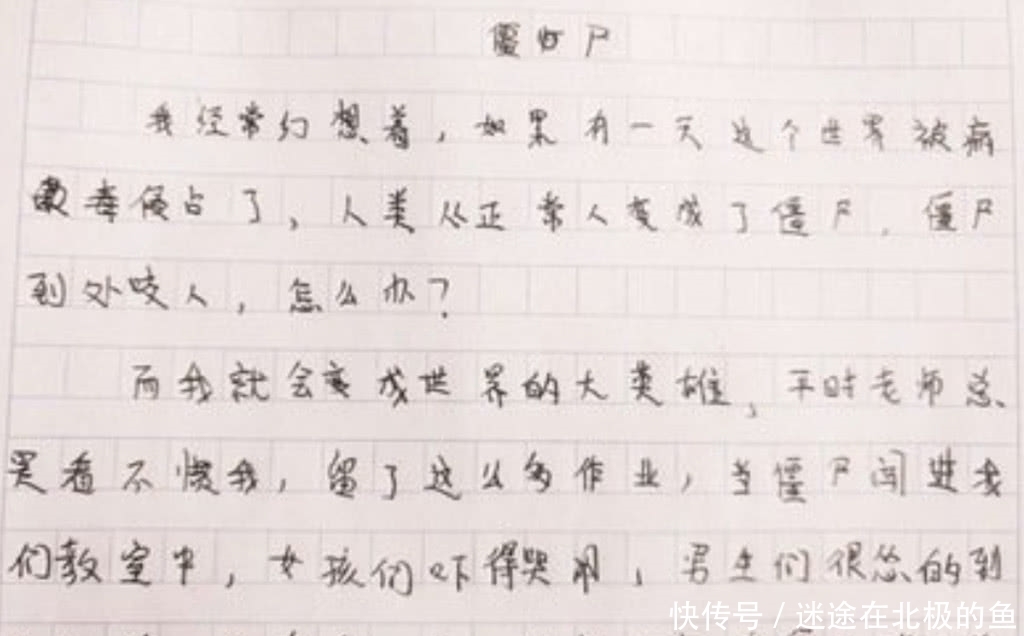 僵尸
我经常幻想着，如果有一天这个世界被病
毒侵占了，人类从正常人变成了僵尸，僵尸
到处咬人，怎么办？
而我就会变成世界的大英雄，平时老师总
是看不惯我，留了这么多作业，当僵尸闯进我
们教室中，女孩们吓得哭闹，男生们很怂的到
快传号 / 迷途在北极的鱼